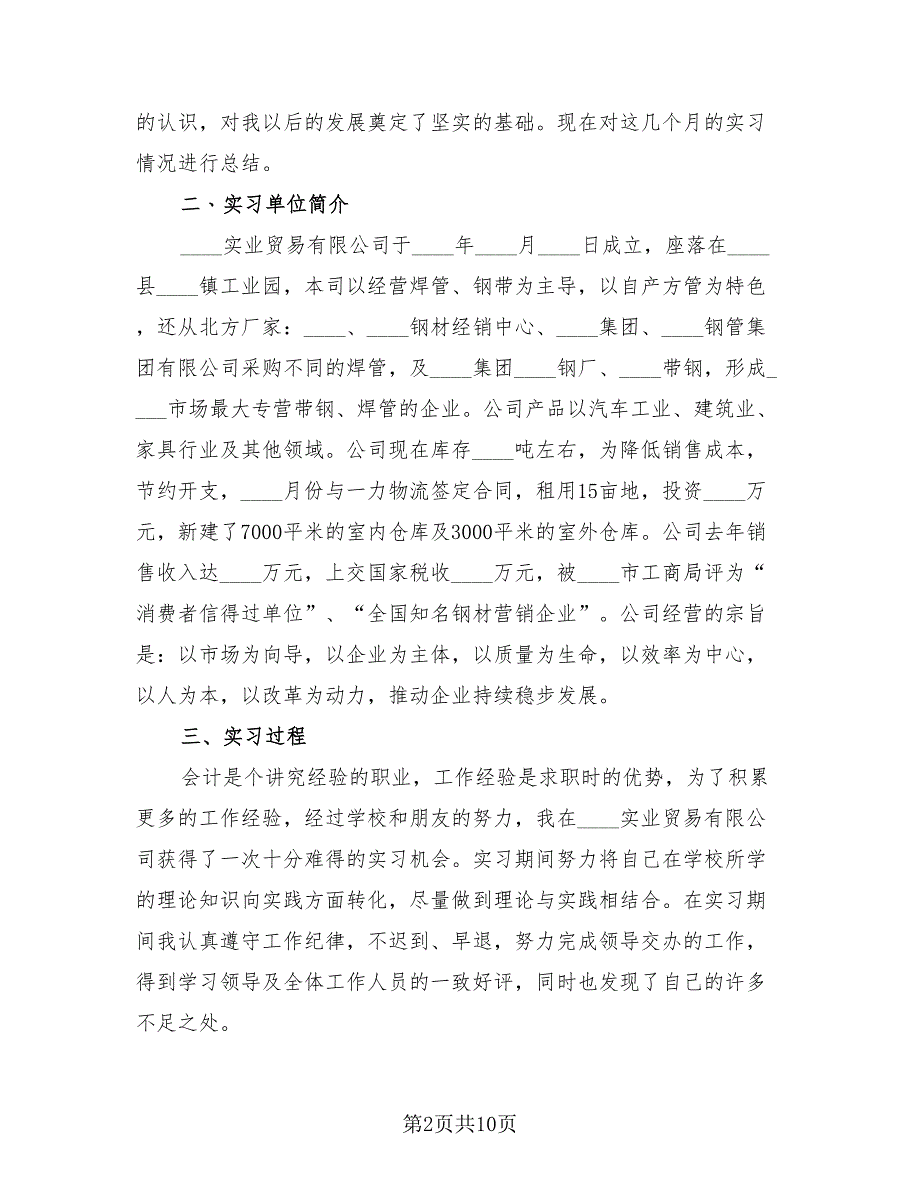 的认识，对我以后的发展奠定了坚实的基础。现在对这几个月的实习
情况进行总结。
二、实习单位简介
____实业贸易有限公司于____年____月____日成立，座落在____
县____镇工业园，本司以经营焊管、钢带为主导，以自产方管为特色
，还从北方厂家：____、____钢材经销中心、____集团、____钢管集
团有限公司采购不同的焊管，及____集团____钢厂、____带钢，形成_
___市场最大专营带钢、焊管的企业。公司产品以汽车工业、建筑业、
家具行业及其他领域。公司现在库存____吨左右，为降低销售成本，
节约开支，____月份与一力物流签定合同，租用15亩地，投资____万
元，新建了7000平米的室内仓库及3000平米的室外仓库。公司去年销
售收入达____万元，上交国家税收____万元，被____市工商局评为“
消费者信得过单位”、“全国知名钢材营销企业”。公司经营的宗旨
是：以市场为向导，以企业为主体，以质量为生命，以效率为中心，
以人为本，以改革为动力，推动企业持续稳步发展。
三、实习过程
会计是个讲究经验的职业，工作经验是求职时的优势，为了积累
更多的工作经验，经过学校和朋友的努力，我在____实业贸易有限公
司获得了一次十分难得的实习机会。实习期间努力将自己在学校所学
的理论知识向实践方面转化，尽量做到理论与实践相结合。在实习期
间我认真遵守工作纪律，不迟到、早退，努力完成领导交办的工作，
得到学习领导及全体工作人员的一致好评，同时也发现了自己的许多
不足之处。
第2页共10页